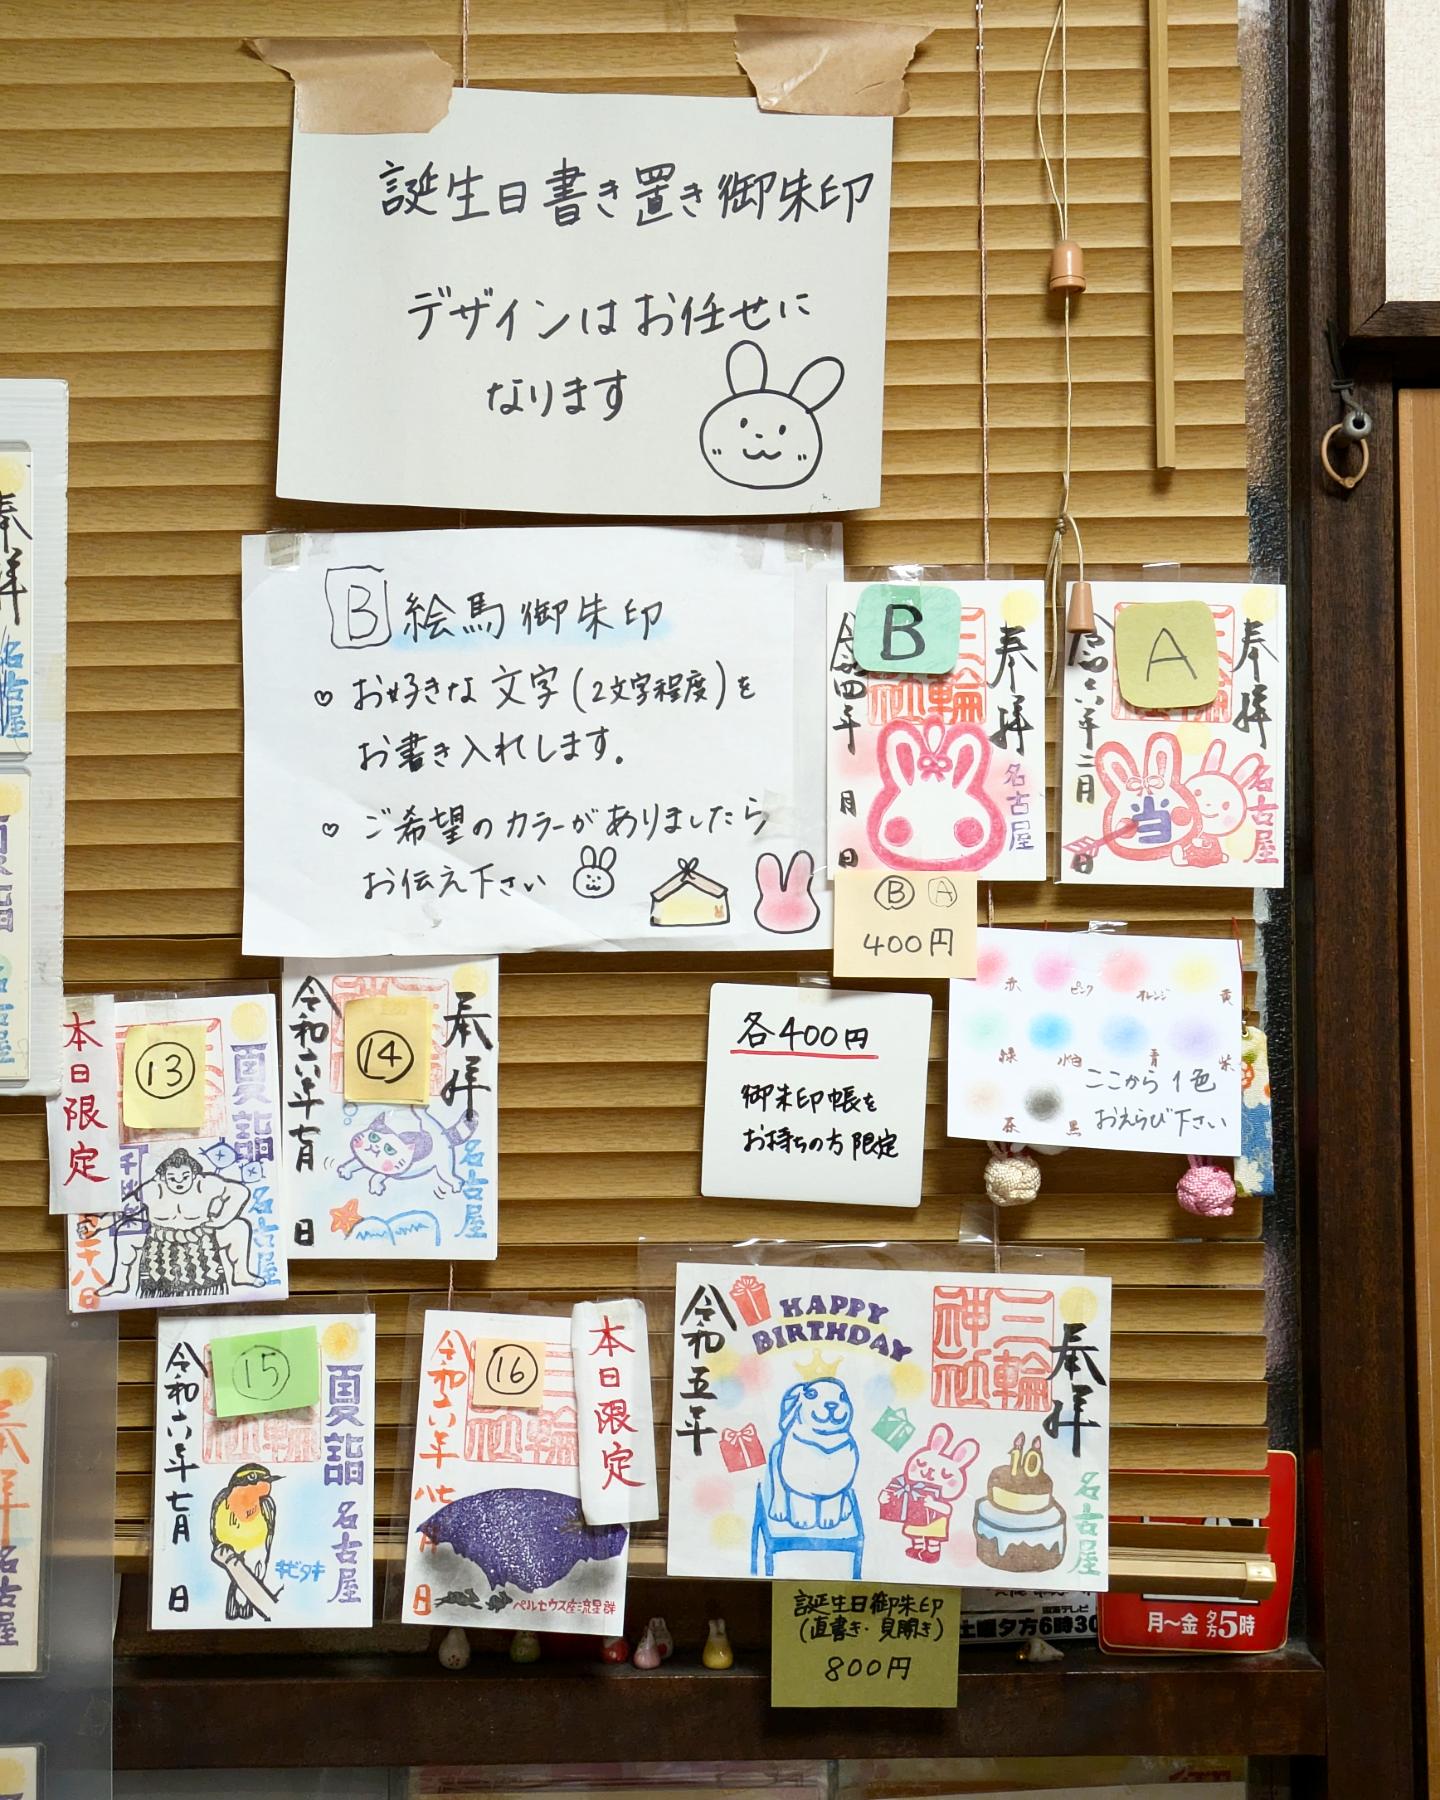 誕生日書き置き御朱印
デザインはお任せに
なります
B 絵馬御朱印
♡ お好きな文字(2文字程度)を
お書き入れします。
♡ ご希望のカラーがありましたら
お伝え下さい
B
奉拝
三輪
令和四年 月 日
名古屋
A
奉拝
令和六年二月 日
当
名古屋
Ⓑ Ⓐ
400円
赤 ピンク オレンジ 黄
緑 水色 青 紫
茶 黒
ここから1色
おえらび下さい
各400円
御朱印帳を
お持ちの方限定
本日限定
⑬
夏詣
千秋楽
名古屋
二十八日
⑭
奉拝
令和六年七月 日
名古屋
⑮
夏詣
令和六年七月 日
キビタキ
名古屋
⑯
本日限定
令和六年
日
ペルセウス座流星群
奉拝
三輪神社
HAPPY
BIRTHDAY
令和五年
10
名古屋
誕生日御朱印
(直書き・見開き)
800円
土曜夕方6時30
月〜金 夕方5時
奉拝
名古屋
名古屋